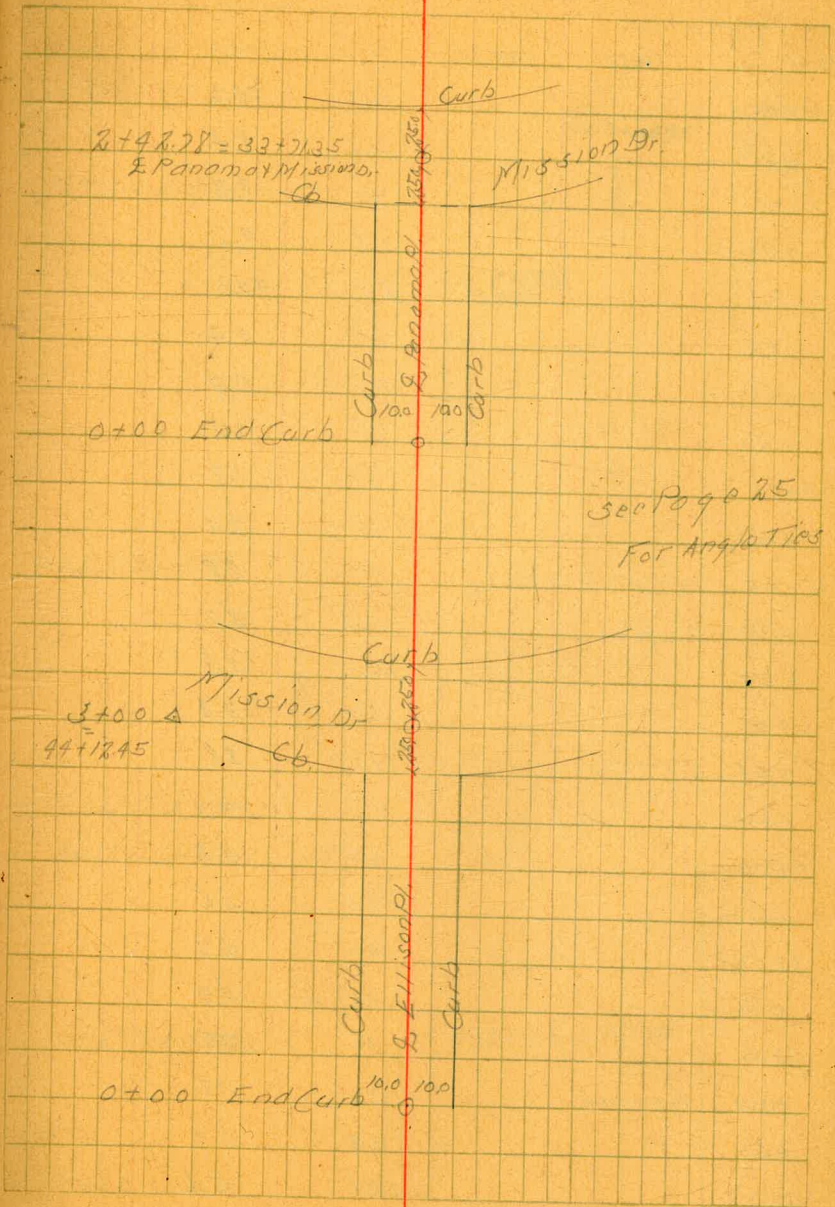 Curb
2+42.78 = 33+71.35
℄ Panama & Mission Dr.
Cb
25.0 25.0
Mission Dr.
℄ Panama Pl.
Curb
Curb
10.0 10.0
0+00 End Curb
See Page 25
For Angle Ties
Curb
Mission Dr
3+00 △
=
44+12.45
Cb.
25.0 25.0
℄ Ellison Pl.
Curb
Curb
10.0 10.0
0+00 End Curb